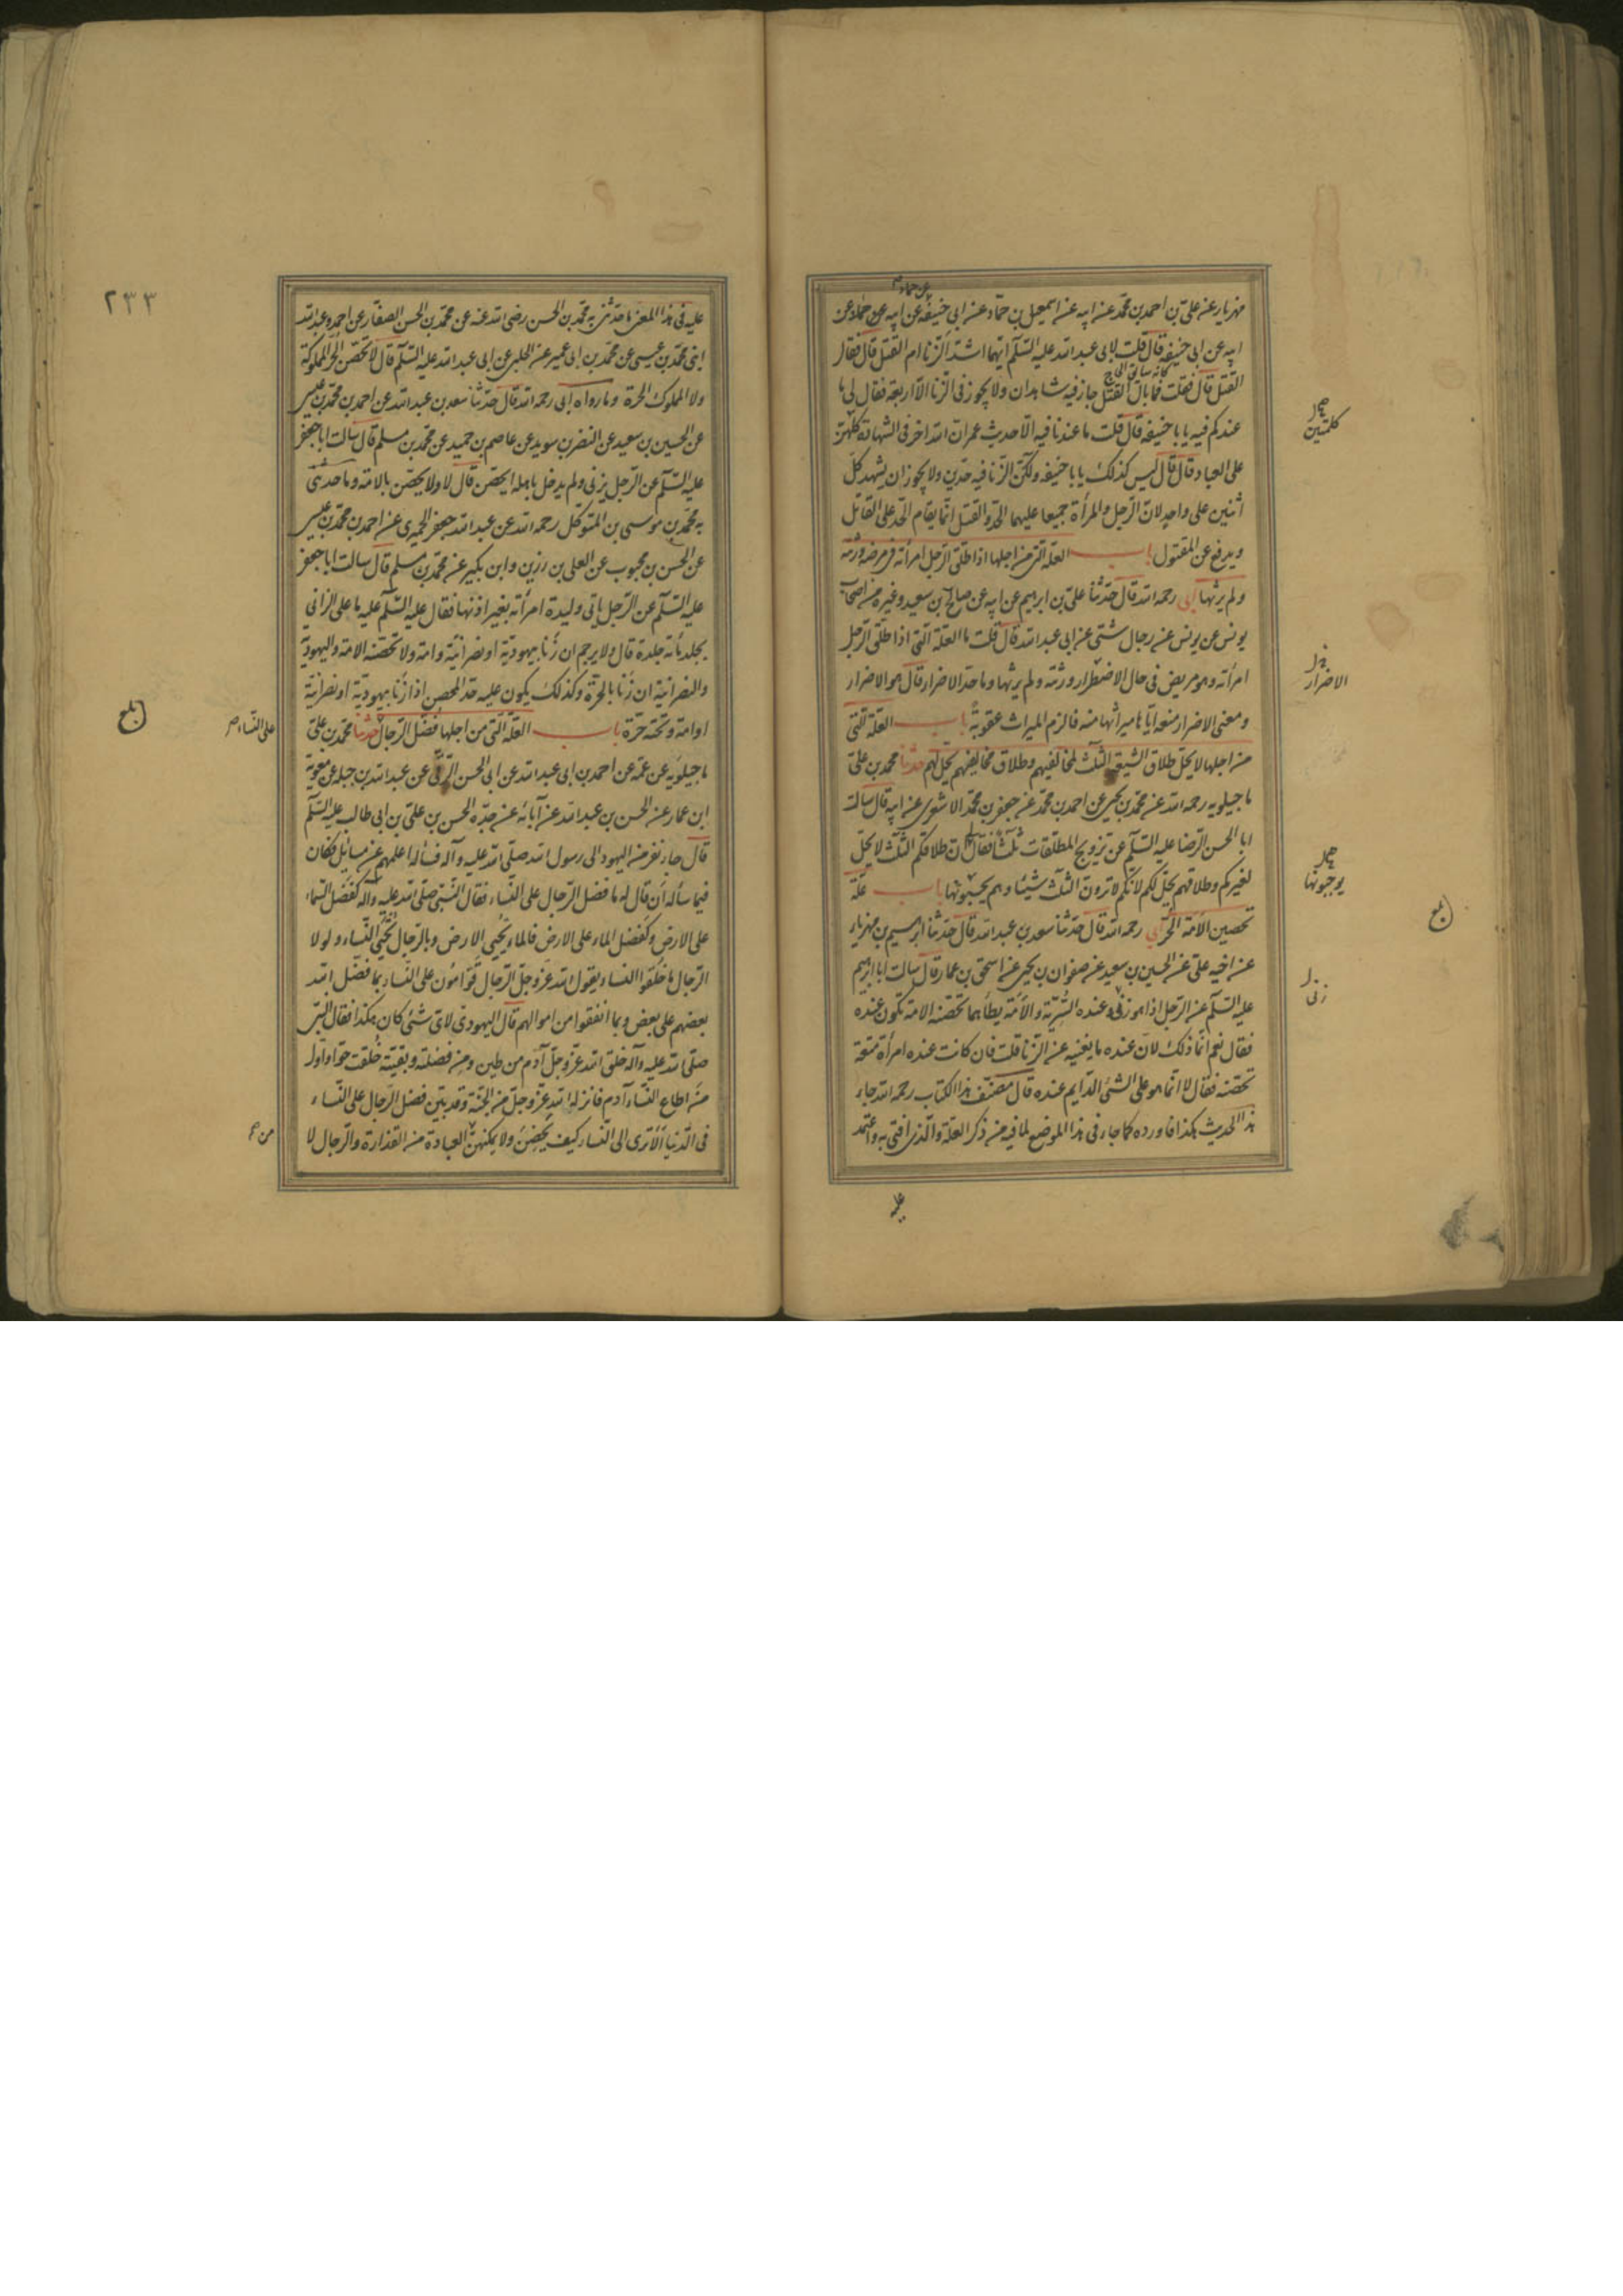 مهزيار عن علي بن احمد بن محمد عن ابيه عن اسمعيل بن حماد عن ابي حنيفه عن ابيه عن حماد عن
ابيه عن ابي حنيفه قال قلت لابي عبد الله عليه السلام ايهما اشد الزنا ام القتل قال فقال
القتل قال فقلت فما بال القتل جاز فيه شاهدان ولا يجوز في الزنا الا اربعة فقال لي ما
عندكم فيه يا با حنيفه قال قلت ما عندنا فيه الا حديث عمر ان الله اخر في الشهادة كلمتين
على العباد قال قال ليس كذلك يا با حنيفه ولكن الزنا فيه حدين ولا يجوز ان يشهد كل
اثنين على واحد لان الرجل والمرأة جميعا عليهما الحد والقتل انما يقام الحد على القاتل
ويدفع عن المقتول باب العلة التي من اجلها اذا طلق الرجل امرأته في مرضه ورثته
ولم يرثها ابي رحمه الله قال حدثنا علي بن ابراهيم عن ابيه عن صالح بن سعيد وغيره من اصحاب
يونس عن يونس عن رجال شتى عن ابي عبد الله قال قلت ما العلة التي اذا طلق الرجل
امرأته وهو مريض في حال الاضطرار ورثته ولم يرثها وما حد الاضرار قال هو الاضرار
ومعنى الاضرار منعه اياها ميراثها منه فالزم الميراث عقوبة باب العلة التي
من اجلها لا يحل طلاق الشيعة الثلث لمخالفيهم وطلاق مخالفيهم يحل لهم حدثنا محمد بن علي
ماجيلويه رحمه الله عن محمد بن يحيى عن احمد بن محمد عن جعفر بن محمد الاشعري عن ابيه قال سالت
ابا الحسن الرضا عليه السلام عن تزويج المطلقات ثلثا فقال ان طلاقكم الثلث لا يحل
لغيركم وطلاقهم يحل لكم لانكم لا ترون الثلث شيئا وهم يحسبونها باب علة
تحصين الامة الحر ابي رحمه الله قال حدثنا سعد بن عبد الله قال حدثنا ابرهيم بن مهزيار
عن اخيه علي عن الحسين بن سعيد عن صفوان بن يحيى عن اسحق بن عمار قال سالت ابا ابرهيم
عليه السلام عن الرجل اذا هو زنى وعنده السرية والامة يطأهما تحصنه الامة تكون عنده
فقال نعم انما ذلك لان عنده ما يغنيه عن الزنا قلت فان كانت عنده امرأة متعة
تحصنه فقال لا انما هو على الشئ الدايم عنده قال مصنف هذا الكتاب رحمه الله جاء
هذا الحديث هكذا فاوردته كما جاء في هذا الموضع لما فيه من ذكر العلة والذي افتي به واعتمد
عليه
كلمتين
الاضرار
يوجبونها
زنى
عليه في هذا المعنى ما حدثني به محمد بن الحسن رضي الله عنه عن محمد بن الحسن الصفار عن احمد وعبد الله
ابني محمد بن عيسى عن محمد بن ابي عمير عن الحلبي عن ابي عبد الله عليه السلام قال لا يحصن الحر المملوكة
ولا المملوك الحرة وما رواه ابي رحمه الله قال حدثنا سعد بن عبد الله عن احمد بن محمد بن عيسى
عن الحسين بن سعيد عن النضر بن سويد عن عاصم بن حميد عن محمد بن مسلم قال سالت ابا جعفر
عليه السلام عن الرجل يزني ولم يدخل باهله ايحصن قال لا ولا يحصن بالامة وما حدثني
به محمد بن موسى بن المتوكل رحمه الله عن عبد الله جعفر الحميري عن احمد بن محمد بن عيسى
عن الحسن بن محبوب عن العلى بن رزين وابن بكير عن محمد بن مسلم قال سالت ابا جعفر
عليه السلام عن الرجل ياتي وليدة امرأته بغير اذنها فقال عليه السلام عليه ما على الزاني
يجلد مأته جلدة قال ولا يرجم ان زنا بيهودية او نصرانية وامة ولا تحصنه الامة واليهودية
والنصرانية ان زنا بالحرة وكذلك يكون عليه حد المحصن اذا زنا بيهودية او نصرانية
او امة وتحته حرة باب العلة التي من اجلها فضل الرجال حدثنا محمد بن علي
ماجيلويه عن عمه عن احمد بن ابي عبد الله عن ابي الحسن البرقي عن عبد الله بن جبله عن معوية
ابن عمار عن الحسن بن عبد الله عن آبائه عن جده الحسن بن علي بن ابي طالب عليه السلام
قال جاء نفر من اليهود الى رسول الله صلى الله عليه وآله فسأله اعلمهم عن مسائل فكان
فيما سأله ان قال له ما فضل الرجال على النساء فقال النبي صلى الله عليه وآله كفضل السماء
على الارض وكفضل الماء على الارض فالماء يحيي الارض وبالرجال تحيى النساء ولولا
الرجال ما خلقوا النساء يقول الله عز وجل الرجال قوامون على النساء بما فضل الله
بعضهم على بعض وبما انفقوا من اموالهم قال اليهودي لاي شئ كان هكذا فقال النبي
صلى الله عليه وآله خلق الله عز وجل آدم من طين ومن فضلته وبقيته خلقت حوا واول
من اطاع النساء آدم فانزله الله عز وجل من الجنة وقد بين فضل الرجال على النساء
في الدنيا الا ترى الى النساء كيف يحضن ولا يمكنهن العبادة من القذارة والرجال لا
٢٣٣
بلغ
على النساء
من